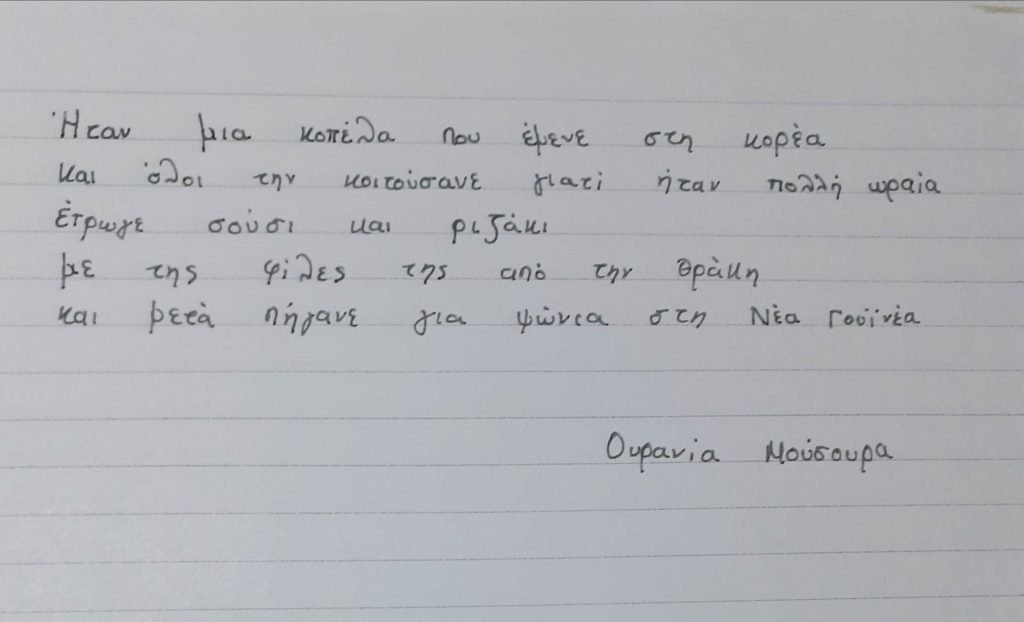 Ήταν μια κοπέλα που έμενε στη κορέα
και όλοι την κοιτούσανε γιατί ήταν πολλή ωραία
Έτρωγε σούσι και ριζάκι
με της φίλες της από την Θράκη
και μετά πήγανε για ψώνια στη Νέα Γουϊνέα
Ουρανία Μούσουρα